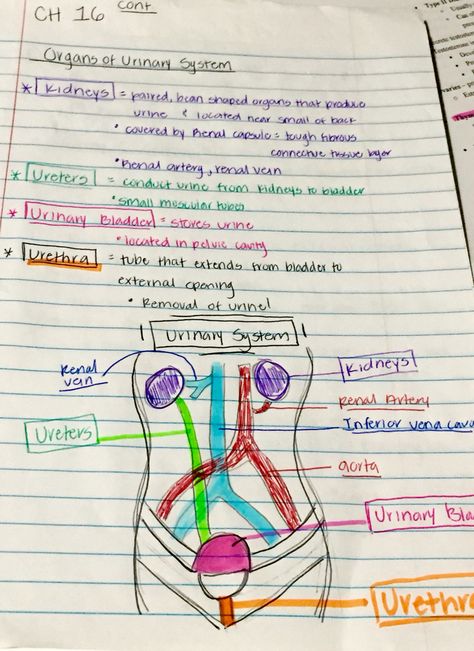 CH 16 cont
Organs of Urinary System
* Kidneys = paired, bean shaped organs that produce
urine & located near small of back
• covered by Renal capsule = tough fibrous
connective tissue layer
• Renal artery, renal vein
* Ureters = conduct urine from kidneys to bladder
• small muscular tubes
* Urinary Bladder = stores urine
• located in pelvic cavity
* Urethra = tube that extends from bladder to
external opening
• Removal of urine!
Urinary System
Renal
vein
Kidneys
Renal Artery
Inferior vena cava
Ureters
aorta
Urinary Bla
Urethra